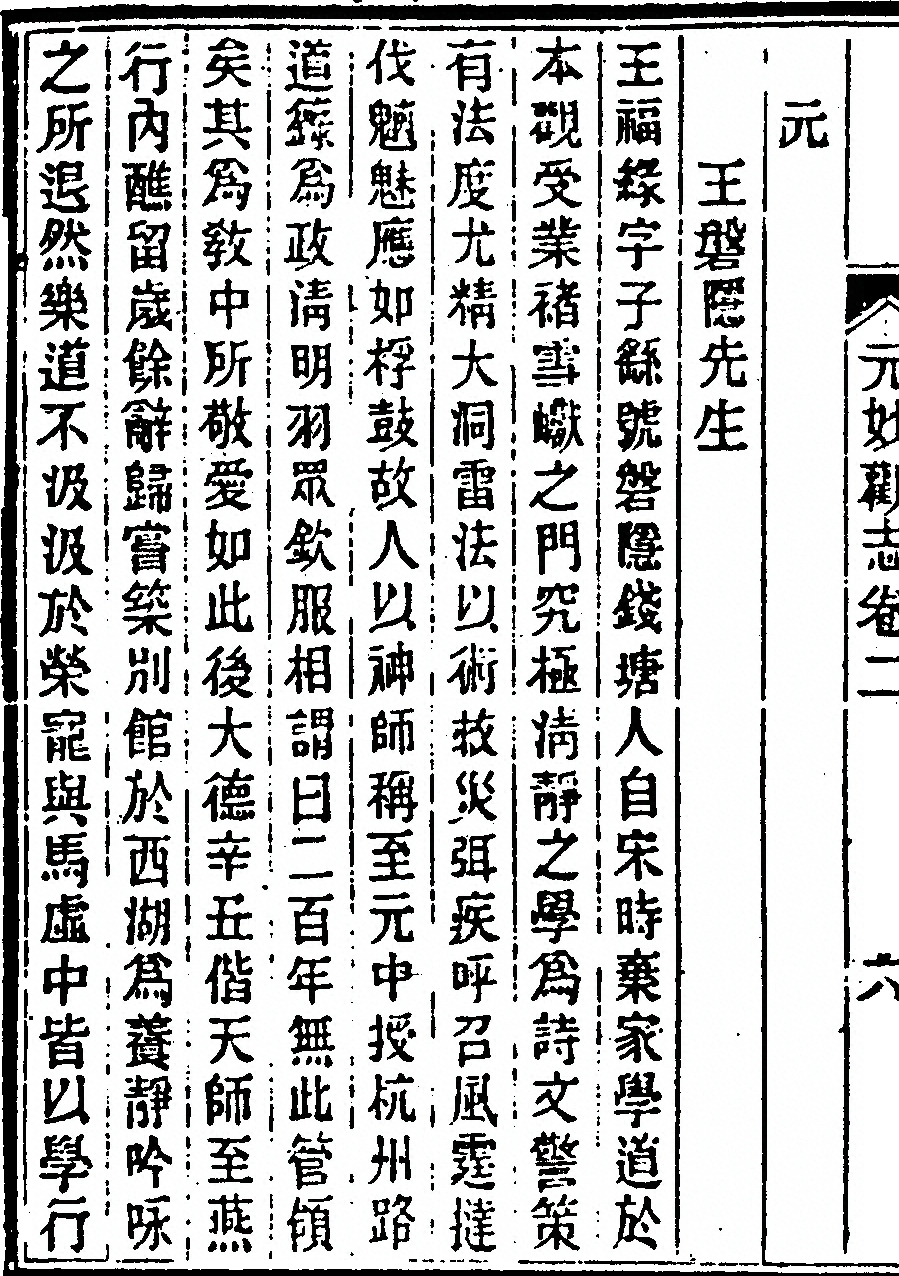 元妙觀志卷二
六
元
王磐隱先生
王福緣字子繇號磐隱錢塘人自宋時棄家學道於
本觀受業褚雪巘之門究極淸靜之學爲詩文警策
有法度尤精大洞雷法以術救災弭疾呼召風霆撻
伐魑魅應如桴鼓故人以神師稱至元中授杭州路
道籙爲政淸明羽眾欽服相謂曰二百年無此管領
矣其爲敎中所敬愛如此後大德辛丑偕天師至燕
行內醮留歲餘辭歸嘗築別館於西湖爲養靜吟咏
之所退然樂道不汲汲於榮寵與馬虛中皆以學行